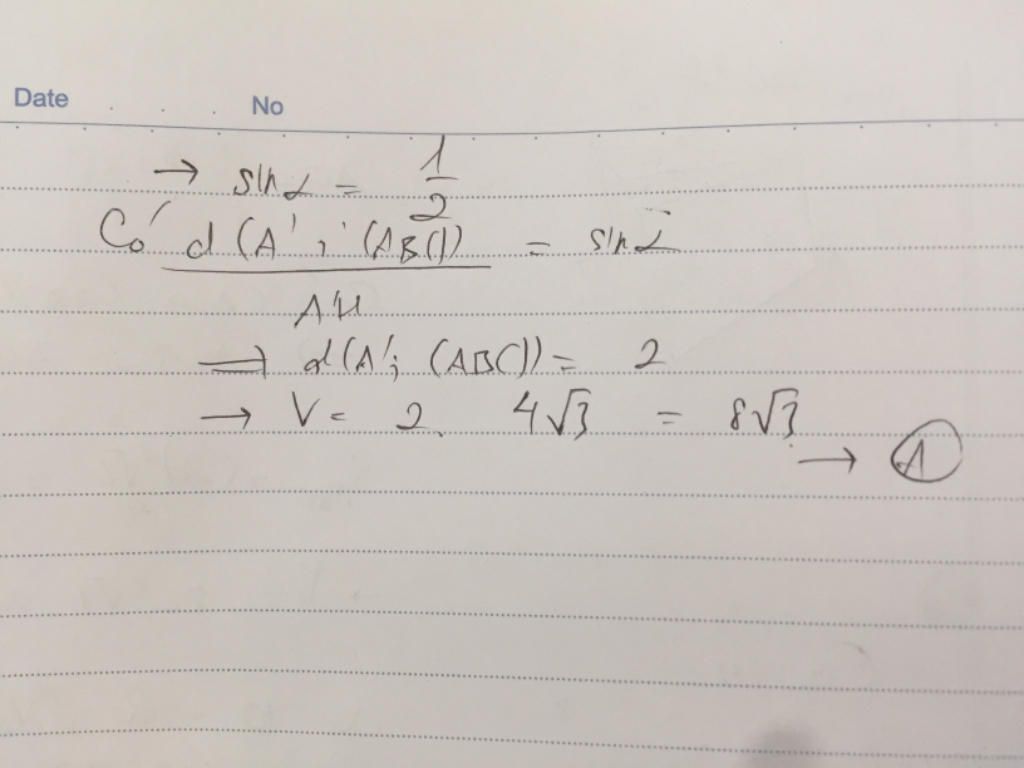 Date No
→ sin α = 1/2
Có d(A'; (ABC)) / A'H = sin α
⇒ d(A'; (ABC)) = 2
→ V = 2. 4√3 = 8√3
→ A